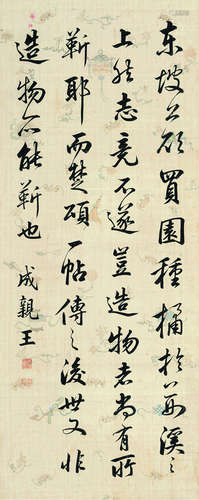 东坡公欲買園種橘於荆溪之
上然志竟不遂豈造物者尚有所
靳耶而楚頌一帖傳之後世又非
造物所能靳也
成親王